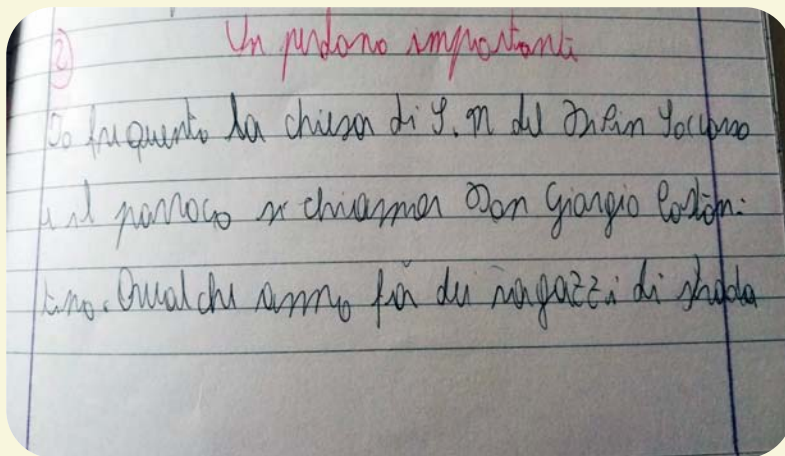 2) Un perdono importante
Io frequento la chiesa di S. M del Soccorso
e il parroco si chiama Don Giorgio Costan:
tino. Qualche anno fa dei ragazzi di strada